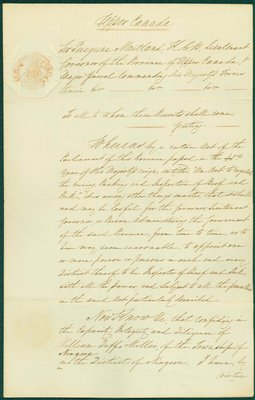 Upper Canada
Sir Peregrine Maitland K.C.B. Lieutenant
Governor of the Province of Upper Canada &
Major General Commanding His Majesty's Forces
therein &c &c &c
To all to whom these Presents shall come
Greeting
Whereas by a certain Act of the
Parliament of this Province, passed in the 45th
Year of His Majesty's reign entitled "An Act to regulate
the curing, packing and Inspection of Beef and
Pork", it is among other things enacted, that it shall
and may be lawful for the Governor, Lieutenant
Governor, or Person Administering the Government
of the said Province, from time to time, as to
him may seem reasonable to appoint one
or more person or persons in each and every
District thereof to be Inspector of Beef and Pork
with all the powers, and subject to all the penalties
in the said Act particularly described.
Now Know Ye, that confiding in
the Capacity, Integrity, and Diligence of
William Duff Miller of the Township of
Niagara
in the District of Niagara, I have by
virtue